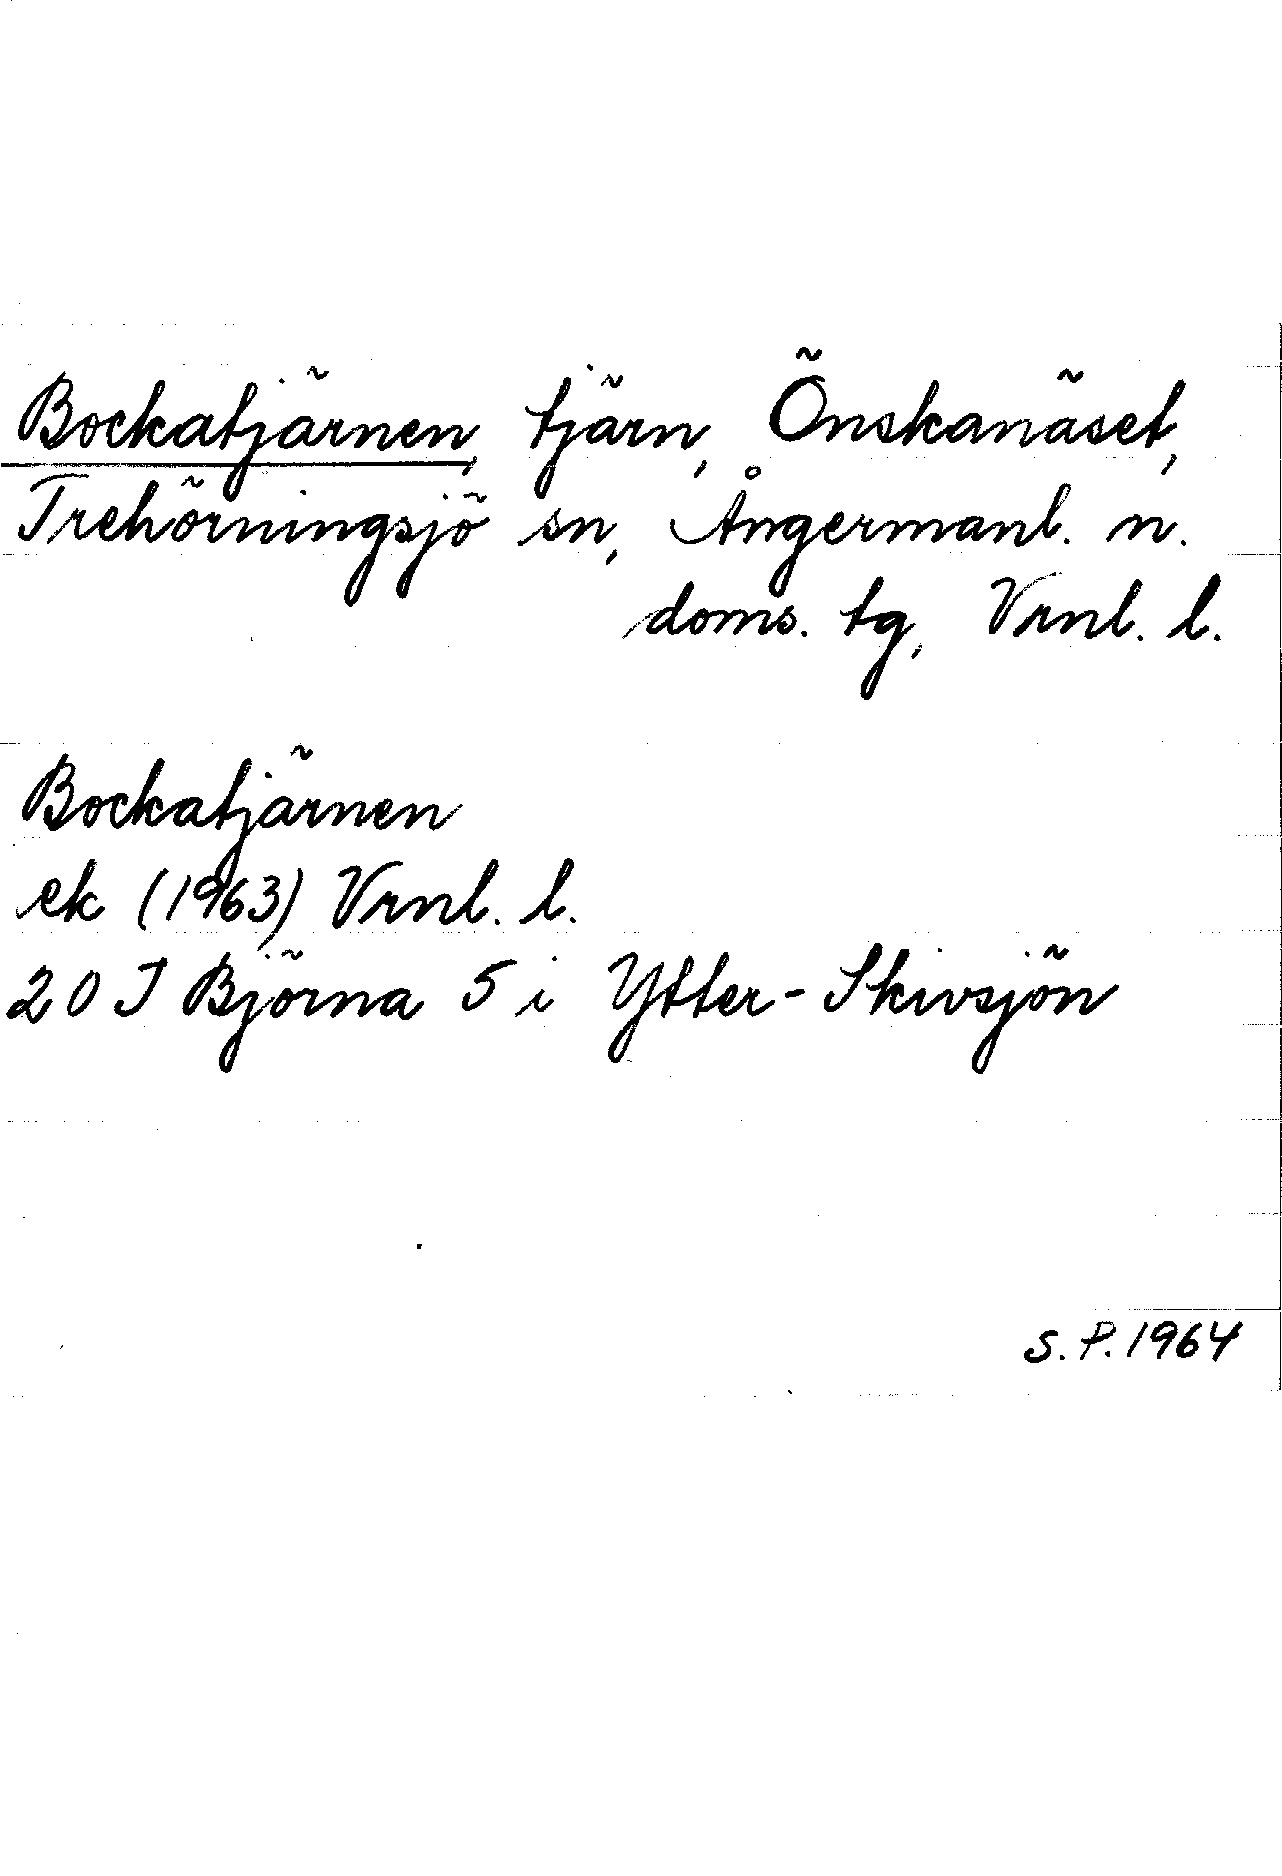 Bockatjärnen, tjärn, Önskanäset,
Trehörningsjö sn, Ångermanl. n.
doms. tg, Vrnl. l.
Bockatjärnen
ek (1963) Vrnl. l.
20 J Björna 5 i Ytter-Skivsjön
S.P. 1964